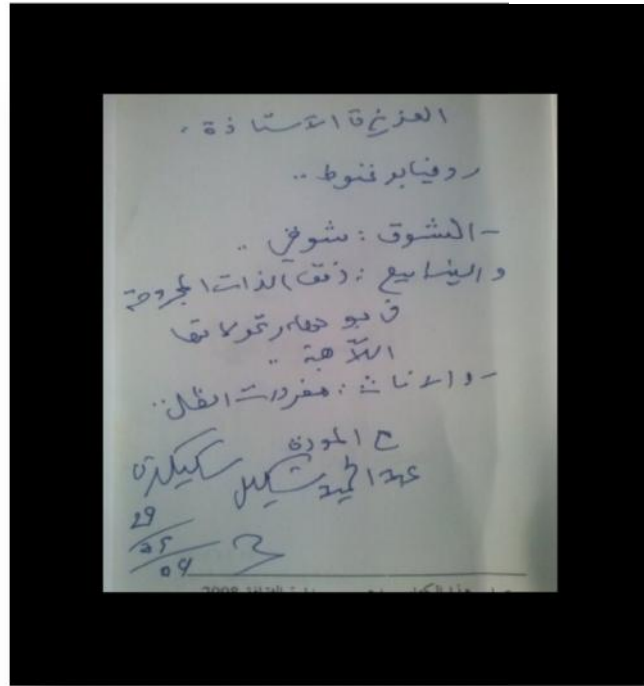 العزيزة الأستاذة،
روفيا بوغنوط ..
- الشوق: شوقي ..
والينابيع: دفق الذات المجروحة
في بوحها وتحولاتها
اللاهبة ..
- والإناث: مفردات الظل ..
ع المودة
عبد الحميد شكيل سكيكدة
29
05
09
2008